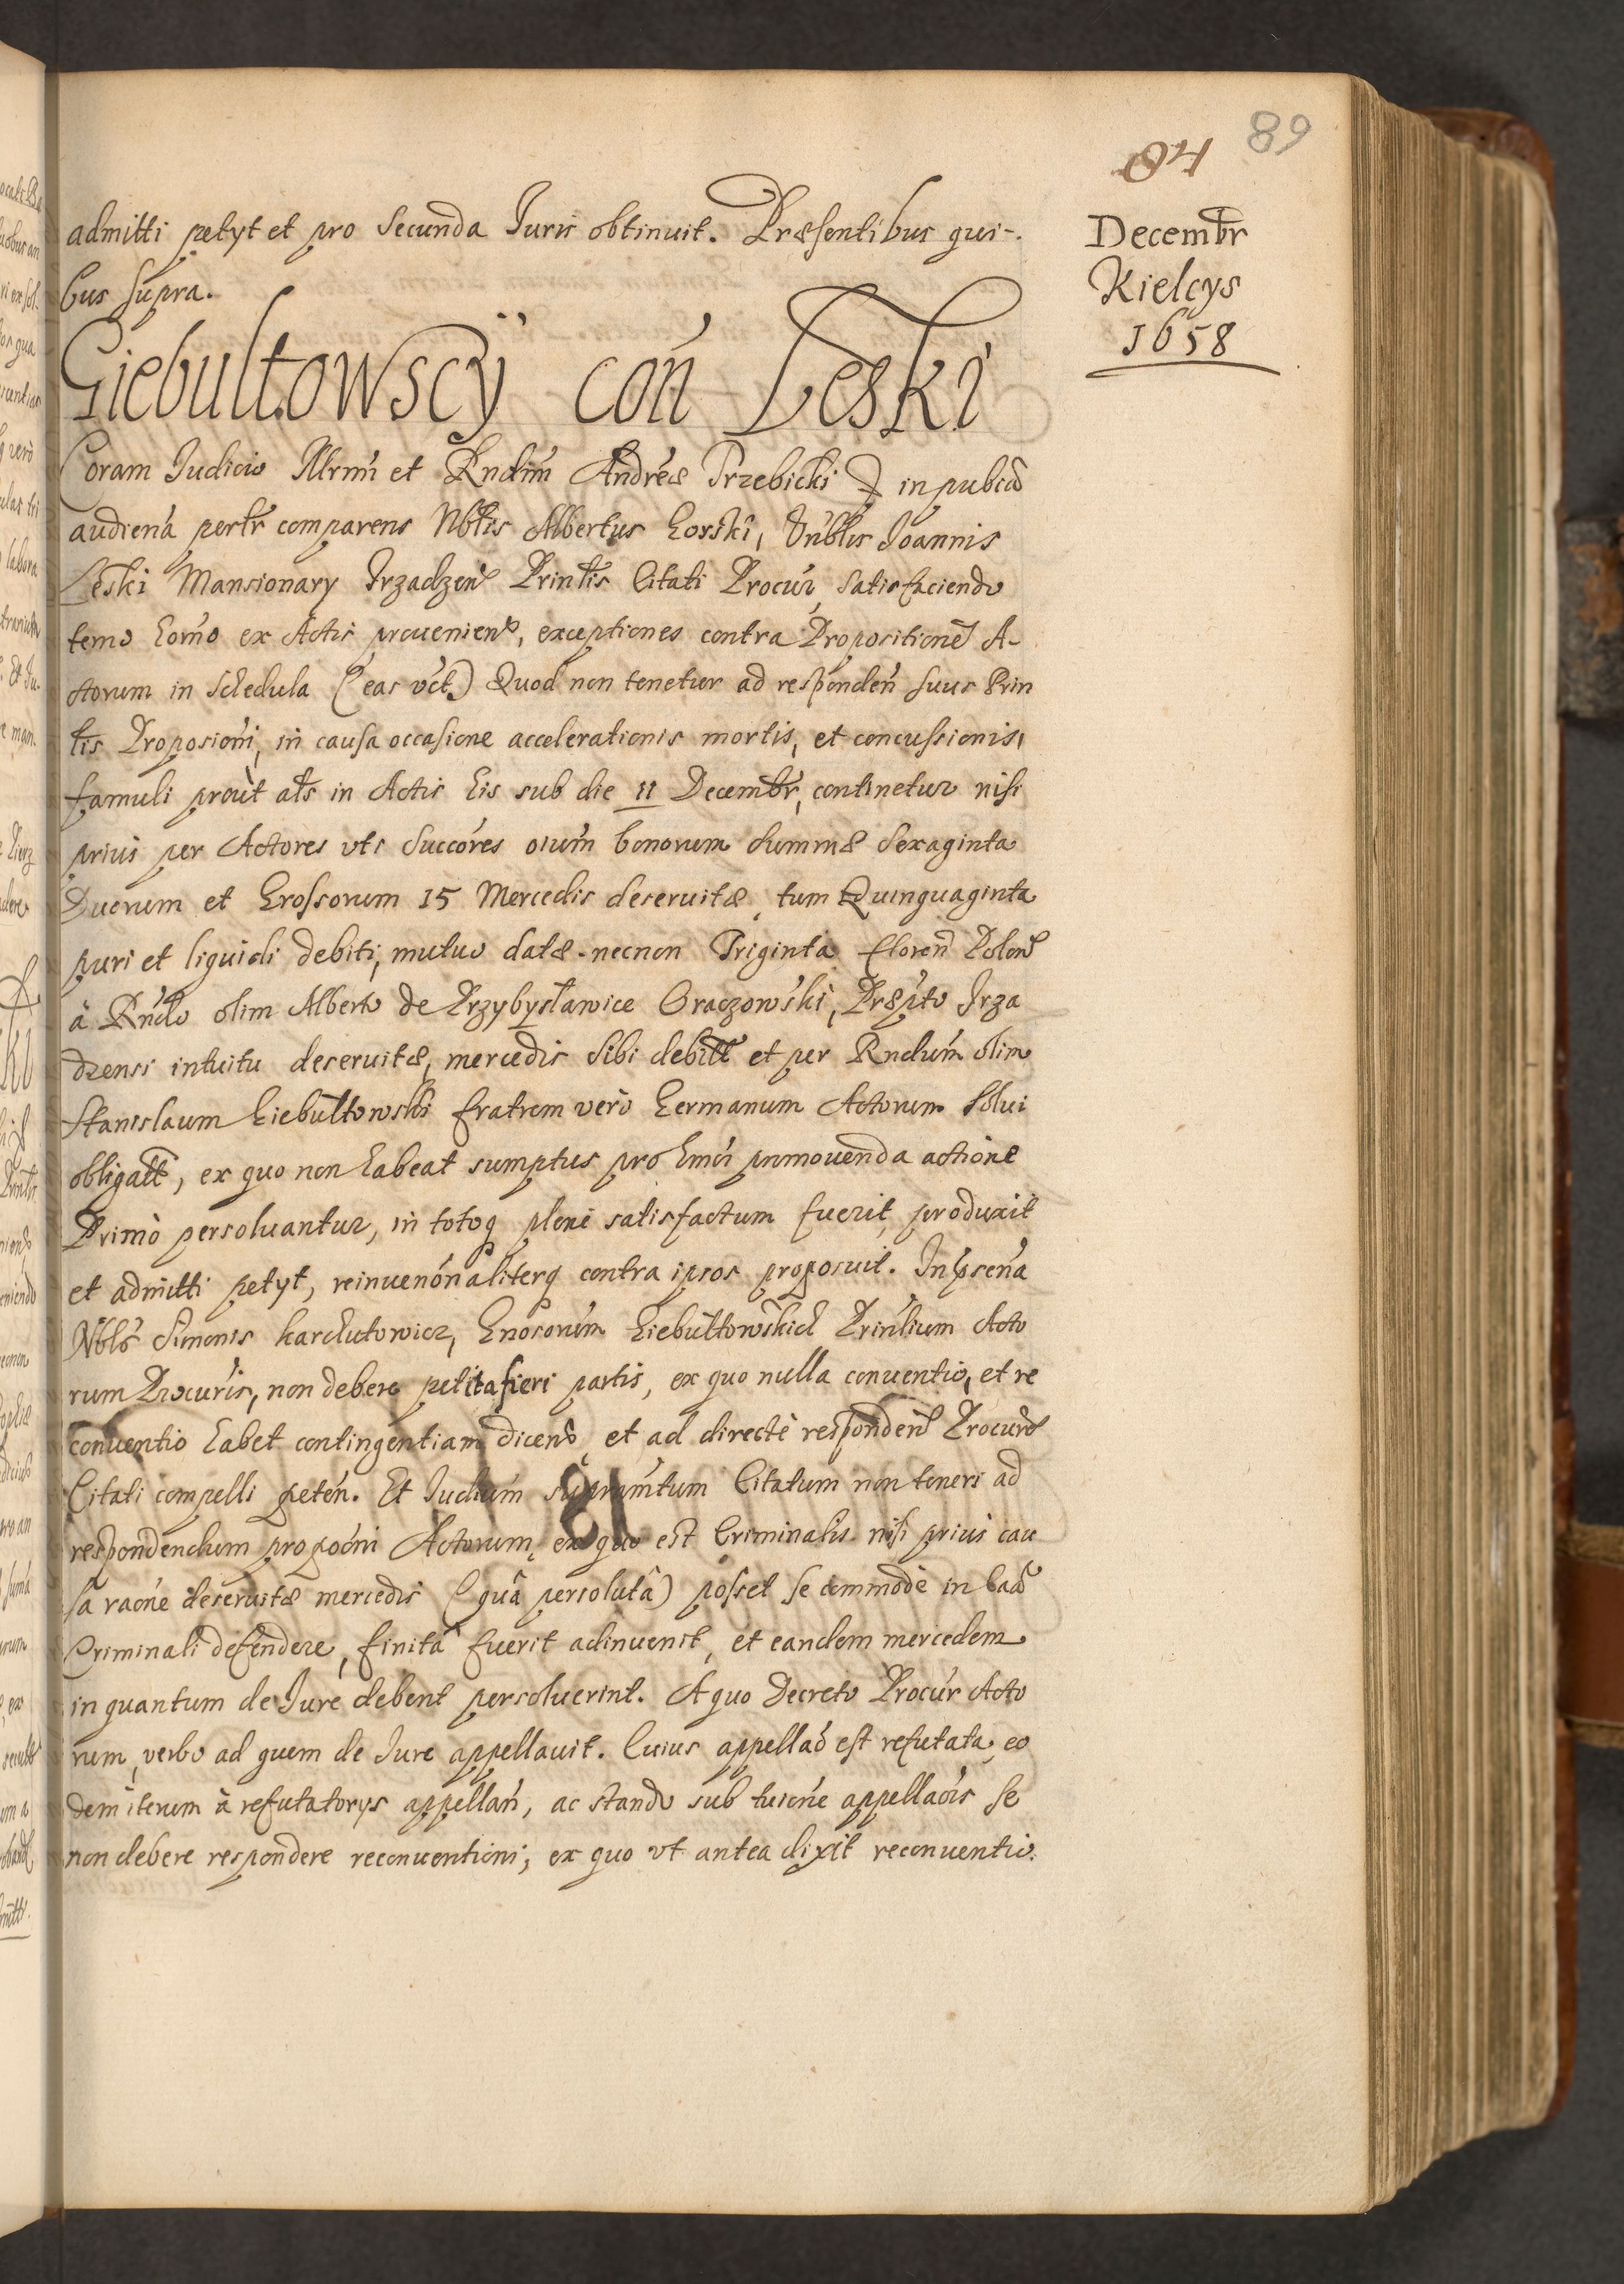 89
84
Decembr
Kielcys
1658
admitti petyt et pro secunda Iuris obtinuit. Præsentibus qui-
bus supra.
Giebultowscÿ con Leski
Coram Iudicio Illrmi et Rndimi Andreæ Trzebicki in publca
audiena pertr comparens Nblis Albertus Gorski, Vnblis Ioannis
Leski Mansionary Irzadzen Prinlis Citati Procur, satisfaciendo
temo homo ex Actis prouenien, exceptiones contra Propositione A-
ctorum in schedula (eas vct) Quod non tenetur ad responden suus Prin
lis Proposioni, in causa occasione accelerationis mortis, et concussionis,
famuli prout als in Actis his sub die 11 Decembr, continetur nisi
prius per Actores vti succores oium bonorum summæ sexaginta
Duorum et Grossorum 15 Mercedis deseruitæ, tum Quinquaginta
puri et liquidi debiti, mutuo datæ necnon Triginta floren Polon
à Rndo olim Alberto de Przybysławice Graczowski, Præpto Irza
dzensi intuitu deseruitæ, mercedis sibi debitt et per Rndum olim
Stanislaum Giebultowski fratrem verò Germanum Actorum solui
obligatt, ex quo non habeat sumptus pro hmoi promouenda actione
Primò persoluantur, in totoq plene satisfactum fuerit, produxit
et admitti petyt, reinuenonaliterq contra ipsos proposuit. In prsena
Nblis Simonis Karchutowicz, Gnosorum Giebultowskich Prinlium Acto
rum Procuris, non debere petita fieri partis, ex quo nulla conuentio, et re
conuentio habet contingentiam dicen, et ad directè responden Procur
Citati compelli peten. Et Iudium supramtum Citatum non teneri ad
respondendum propooni Actorum, ex quo est Criminalis nisi prius cau
sa raone deseruitæ mercedis (quâ persolutâ) posset se commodè in caa
Criminali defendere, finita fuerit adinuenit, et eandem mercedem
in quantum de Iure debent persoluerint. A quo Decreto Procur Acto
rum, verbo ad quem de Iure appellauit. Cuius appellao est refutata, eo
dem iterum à refutatorys appellan, ac stando sub tuione appellaois se
non debere respondere reconuentioni, ex quo vt antea dixit reconuentio